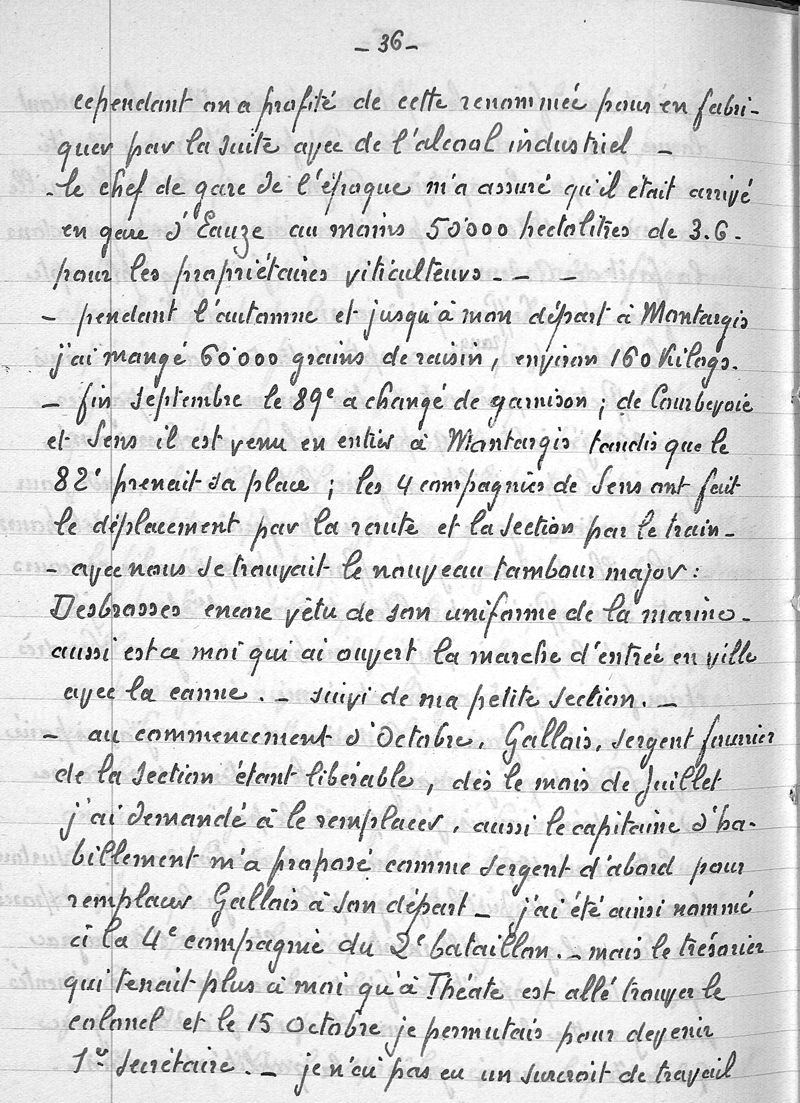 – 36 –
cependant on a profité de cette renommée pour en fabri-
quer par la suite avec de l'alcool industriel –
- le chef de gare de l'époque m'a assuré qu'il était arrivé
en gare d'Eauze au moins 50'000 hectolitres de 3.6.
pour les propriétaires viticulteurs – – –
– pendant l'automne et jusqu'à mon départ à Montargis
j'ai mangé 60'000 grains de raisin, environ 160 kilogs.
– fin septembre le 89e a changé de garnison ; de Courbevoie
et Sens il est venu en entier à Montargis tandis que le
82e prenait sa place ; les 4 compagnies de Sens ont fait
le déplacement par la route et la section par le train –
– avec nous se trouvait le nouveau tambour major :
Desbrasses encore vêtu de son uniforme de la marine –
aussi est ce moi qui ai ouvert la marche d'entrée en ville
avec la canne. – suivi de ma petite section. –
– au commencement d'Octobre, Gallais, sergent fourrier
de la section étant libérable, dès le mois de Juillet
j'ai demandé à le remplacer, aussi le capitaine d'ha-
billement m'a proposé comme sergent d'abord pour
remplacer Gallais à son départ – j'ai été ainsi nommé
à la 4e compagnie du 2e bataillon. – mais le trésorier
qui tenait plus à moi qu'à Théate est allé trouver le
colonel et le 15 Octobre je permutais pour devenir
1er secrétaire. – je n'eu pas eu un surcroit de travail